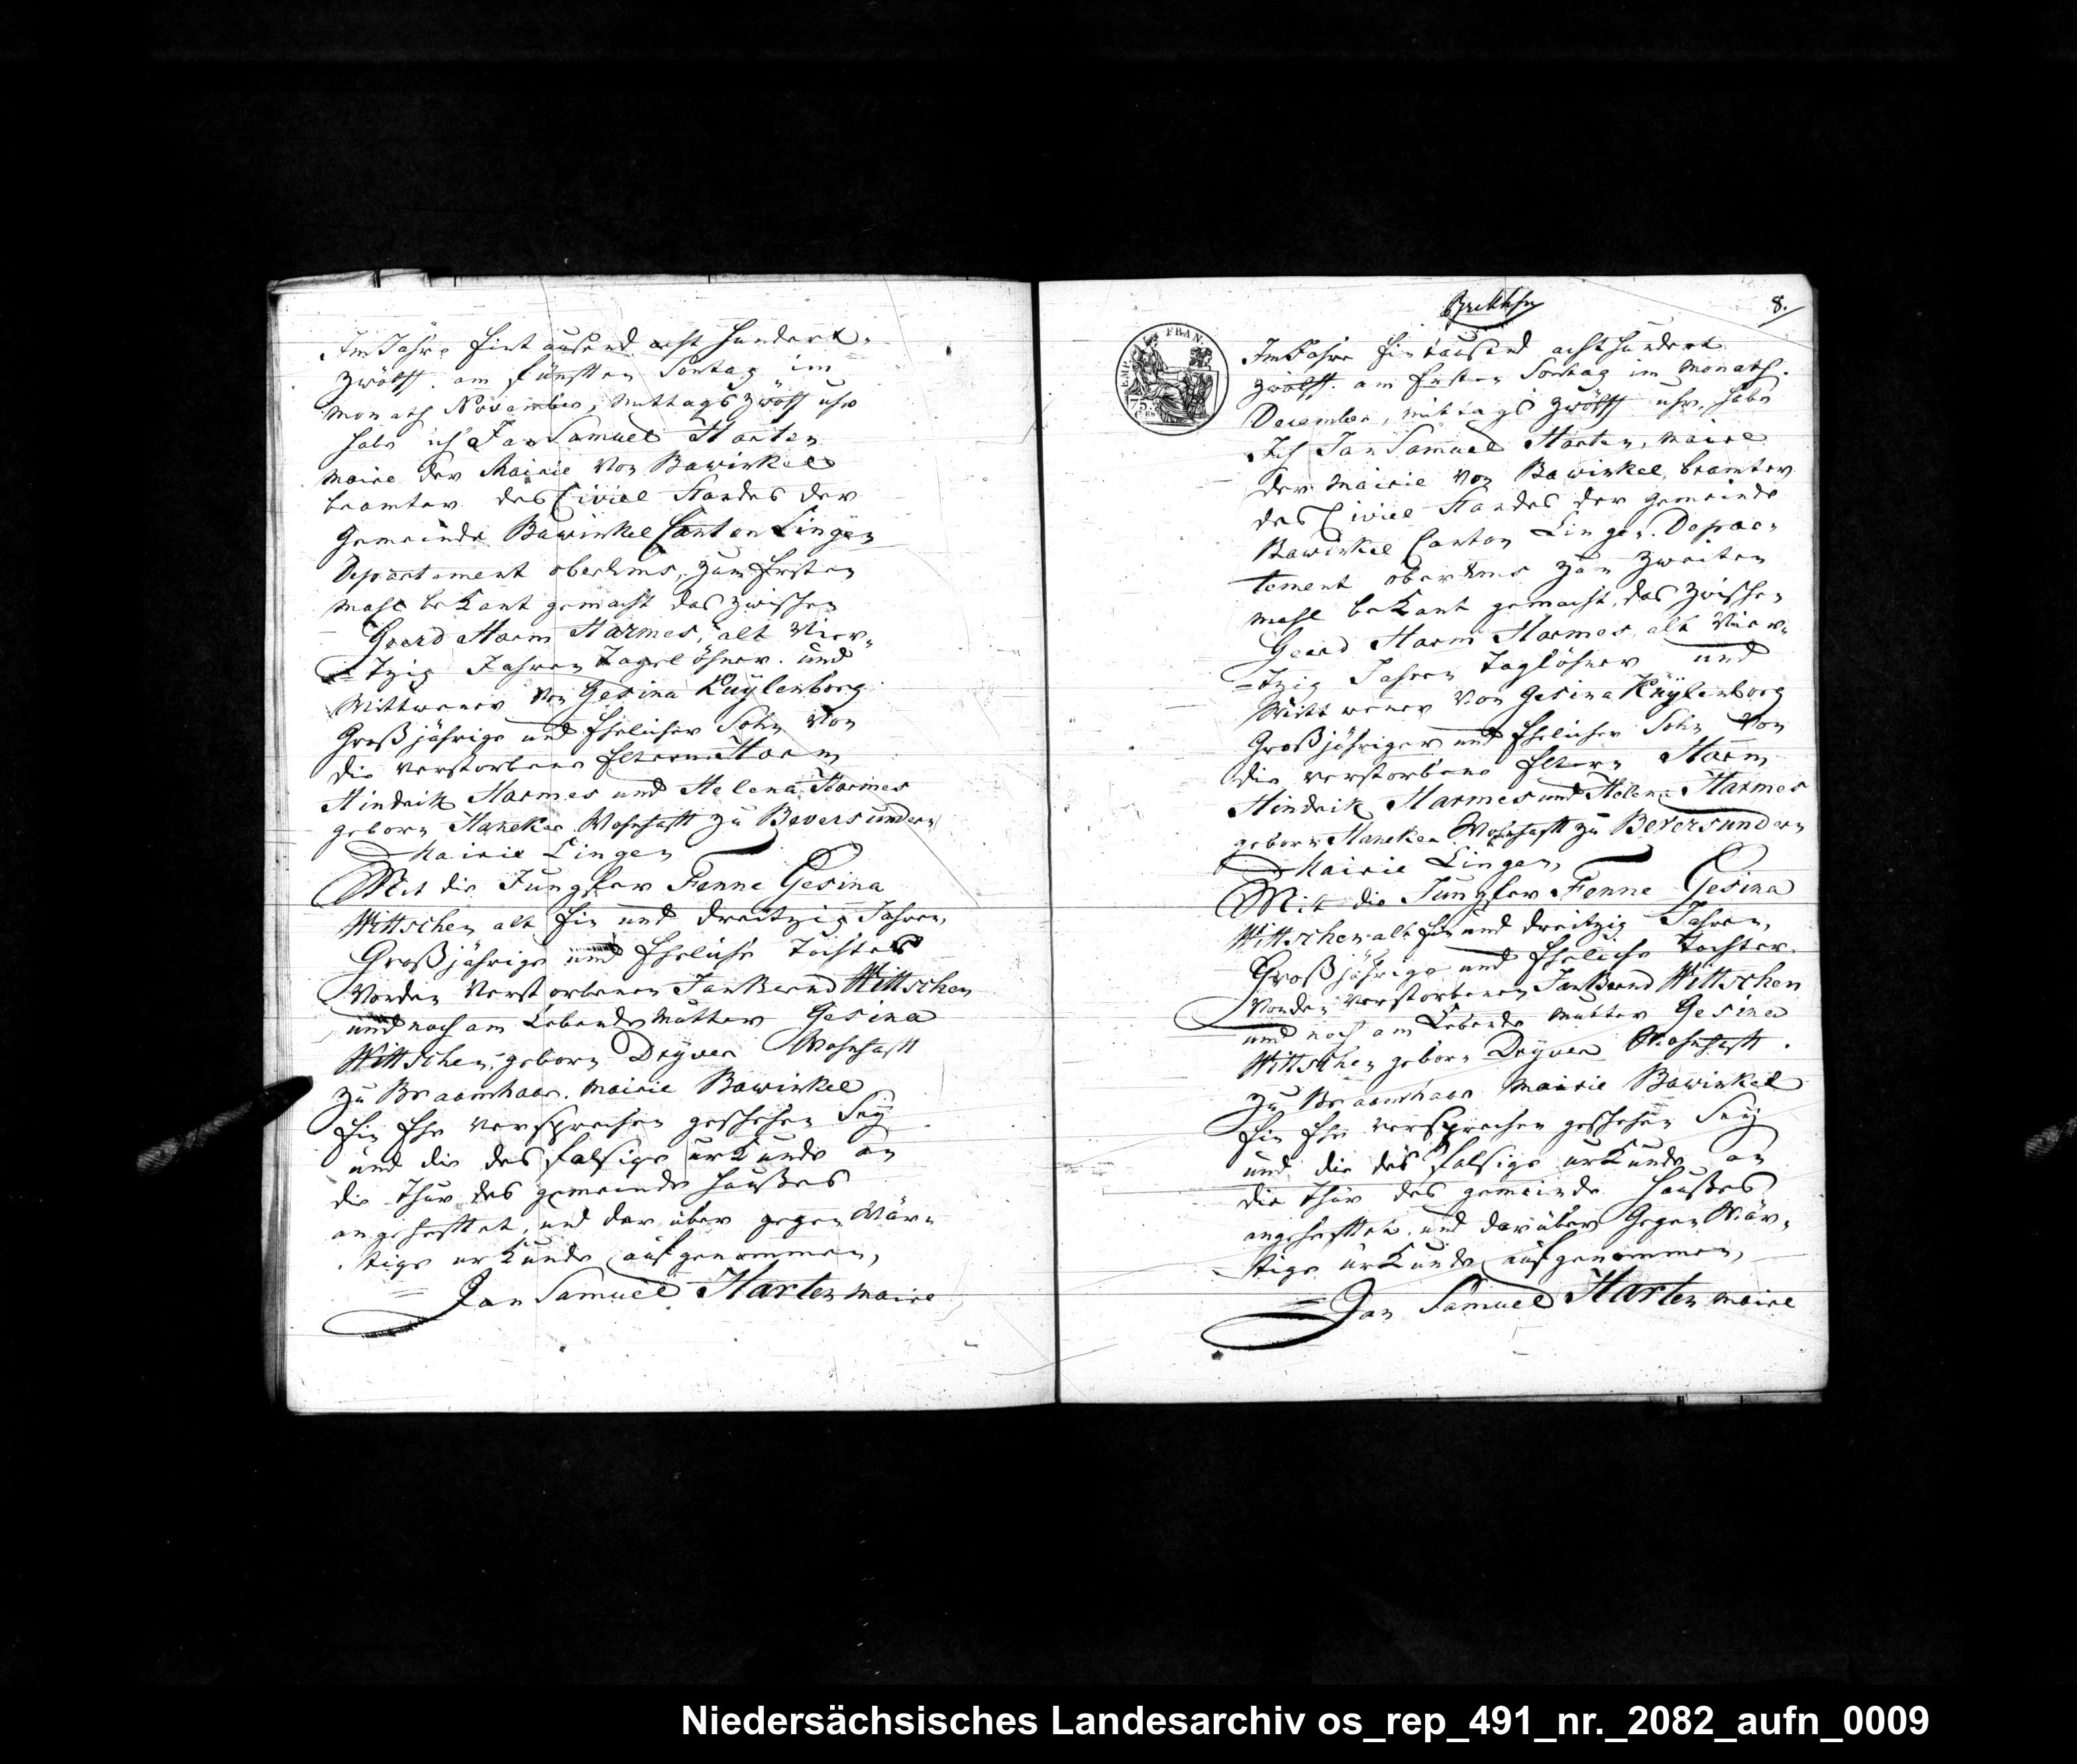 Im Jahre Eintausend acht hundert
zwölff. am fünfften Sontag im
monath November, mittags zwölff uhr
habe ich Jan Samuel Harten
maire der Mairie von Bawinkel
beamter des Civiel Standes der
gemeinde Bawinkel Canton Lingen
Departement oberEms, zum Ersten
mahl bekant gemacht das zwischen
Geerd Harm Harmes, alt Vier„
=tzig Jahren Tagelöhner. und
Wittwener von Gesina Kuÿlenborg
Großjährige und Ehelicher Sohn von
die verstorbene Eltern Harm
Hindrik Harmes und Helena Harmes
geborn Haneken Wohnhafft zu Beversundern
Mairie Lingen
Mit die Jungfer Fenne Gesina
Wittschen alt Ein und dreitzig Jahren,
Großjährige und Eheliche Tochter
Von den Verstorbenen Jan Bernd Wittschen
und noch am Lebende Mutter Gesina
Wittschen, geborn Deÿver Wohnhafft
zu Braamhaar. Mairie Bawinkel
Ein Ehe versprechen geschehen Seÿ
und die desfalsige urkunde an
die Thür des gemeinde Haußes
angehefftet, und darüber gegen Wär„
tige urkunde aufgenommen,
Jan Samuel Harten maire
8.
EMP. FRAN.
75.
Im Jahre Eintausend achthundert
zwölff. am Ersten Sontag im Monath.
December, mittags zwölff uhr. habe
Ich Jan Samuel Harten, maire
der Mairie von Bawinkel, beamter
des Civiel Standes der gemeinde
Bawinkel Canton Lingen. Depar„
tement oberEms zum zweiten
mahl bekant gemacht, das zwischen
Geerd Harm Harmes alt Vier„
=tzig Jahren Taglöhner und
Wittwener von Gesina Kuÿlenborg
Großjähriger und Ehelicher Sohn von
die verstorbene Eltern Harm
Hindrik Harmes und Helena Harmes
geborn Haneken Wohnhafft zu Beversundern
Mairie Lingen,
Mit die Jungfer Fenne Gesina
Wittschen alt Ein und dreitzig Jahren,
Großjährige und Eheliche Tochter
Von den verstorbenen Jan Bernd Wittschen
und noch am Lebende Mutter Gesina
Wittschen geborn Deÿver Wohnhafft.
zu Braamhaar Mairie Bawinkel
Ein Ehe versprechen geschehen Seÿ
und die des falsige urkunde an
die Thür des gemeinde Haußes
angehefftet. und darüber Gegen Wär„
tige urkunde aufgenommen,
Jan Samuel Harten maire
Niedersächsisches Landesarchiv os_rep_491_nr._2082_aufn_0009